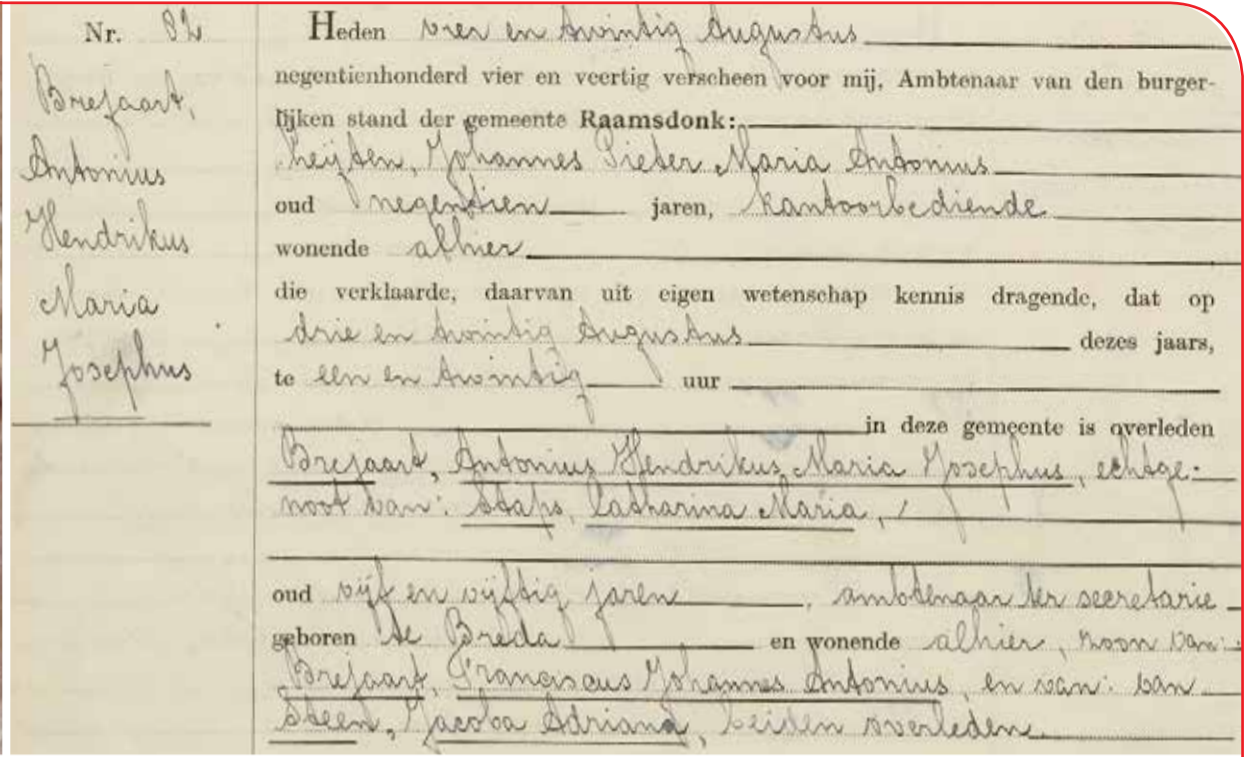 Nr. 82
Brejaart,
Antonius
Hendrikus
Maria
Josephus
Heden vier en twintig Augustus
negentienhonderd vier en veertig verscheen voor mij, Ambtenaar van den burger-
lijken stand der gemeente Raamsdonk:
Heijten, Johannes Pieter Maria Antonius
oud negentien jaren, kantoorbediende
wonende alhier
die verklaarde, daarvan uit eigen wetenschap kennis dragende, dat op
drie en twintig Augustus dezes jaars,
te een en twintig uur
in deze gemeente is overleden
Brejaart, Antonius Hendrikus Maria Josephus, echtge-
noot van: Staps, Catharina Maria,
oud vijf en vijftig jaren, ambtenaar ter secretarie
geboren te Breda en wonende alhier, zoon van:
Brejaart, Franciscus Johannes Antonius, en van: van
Steen, Jacoba Adriana, beiden overleden